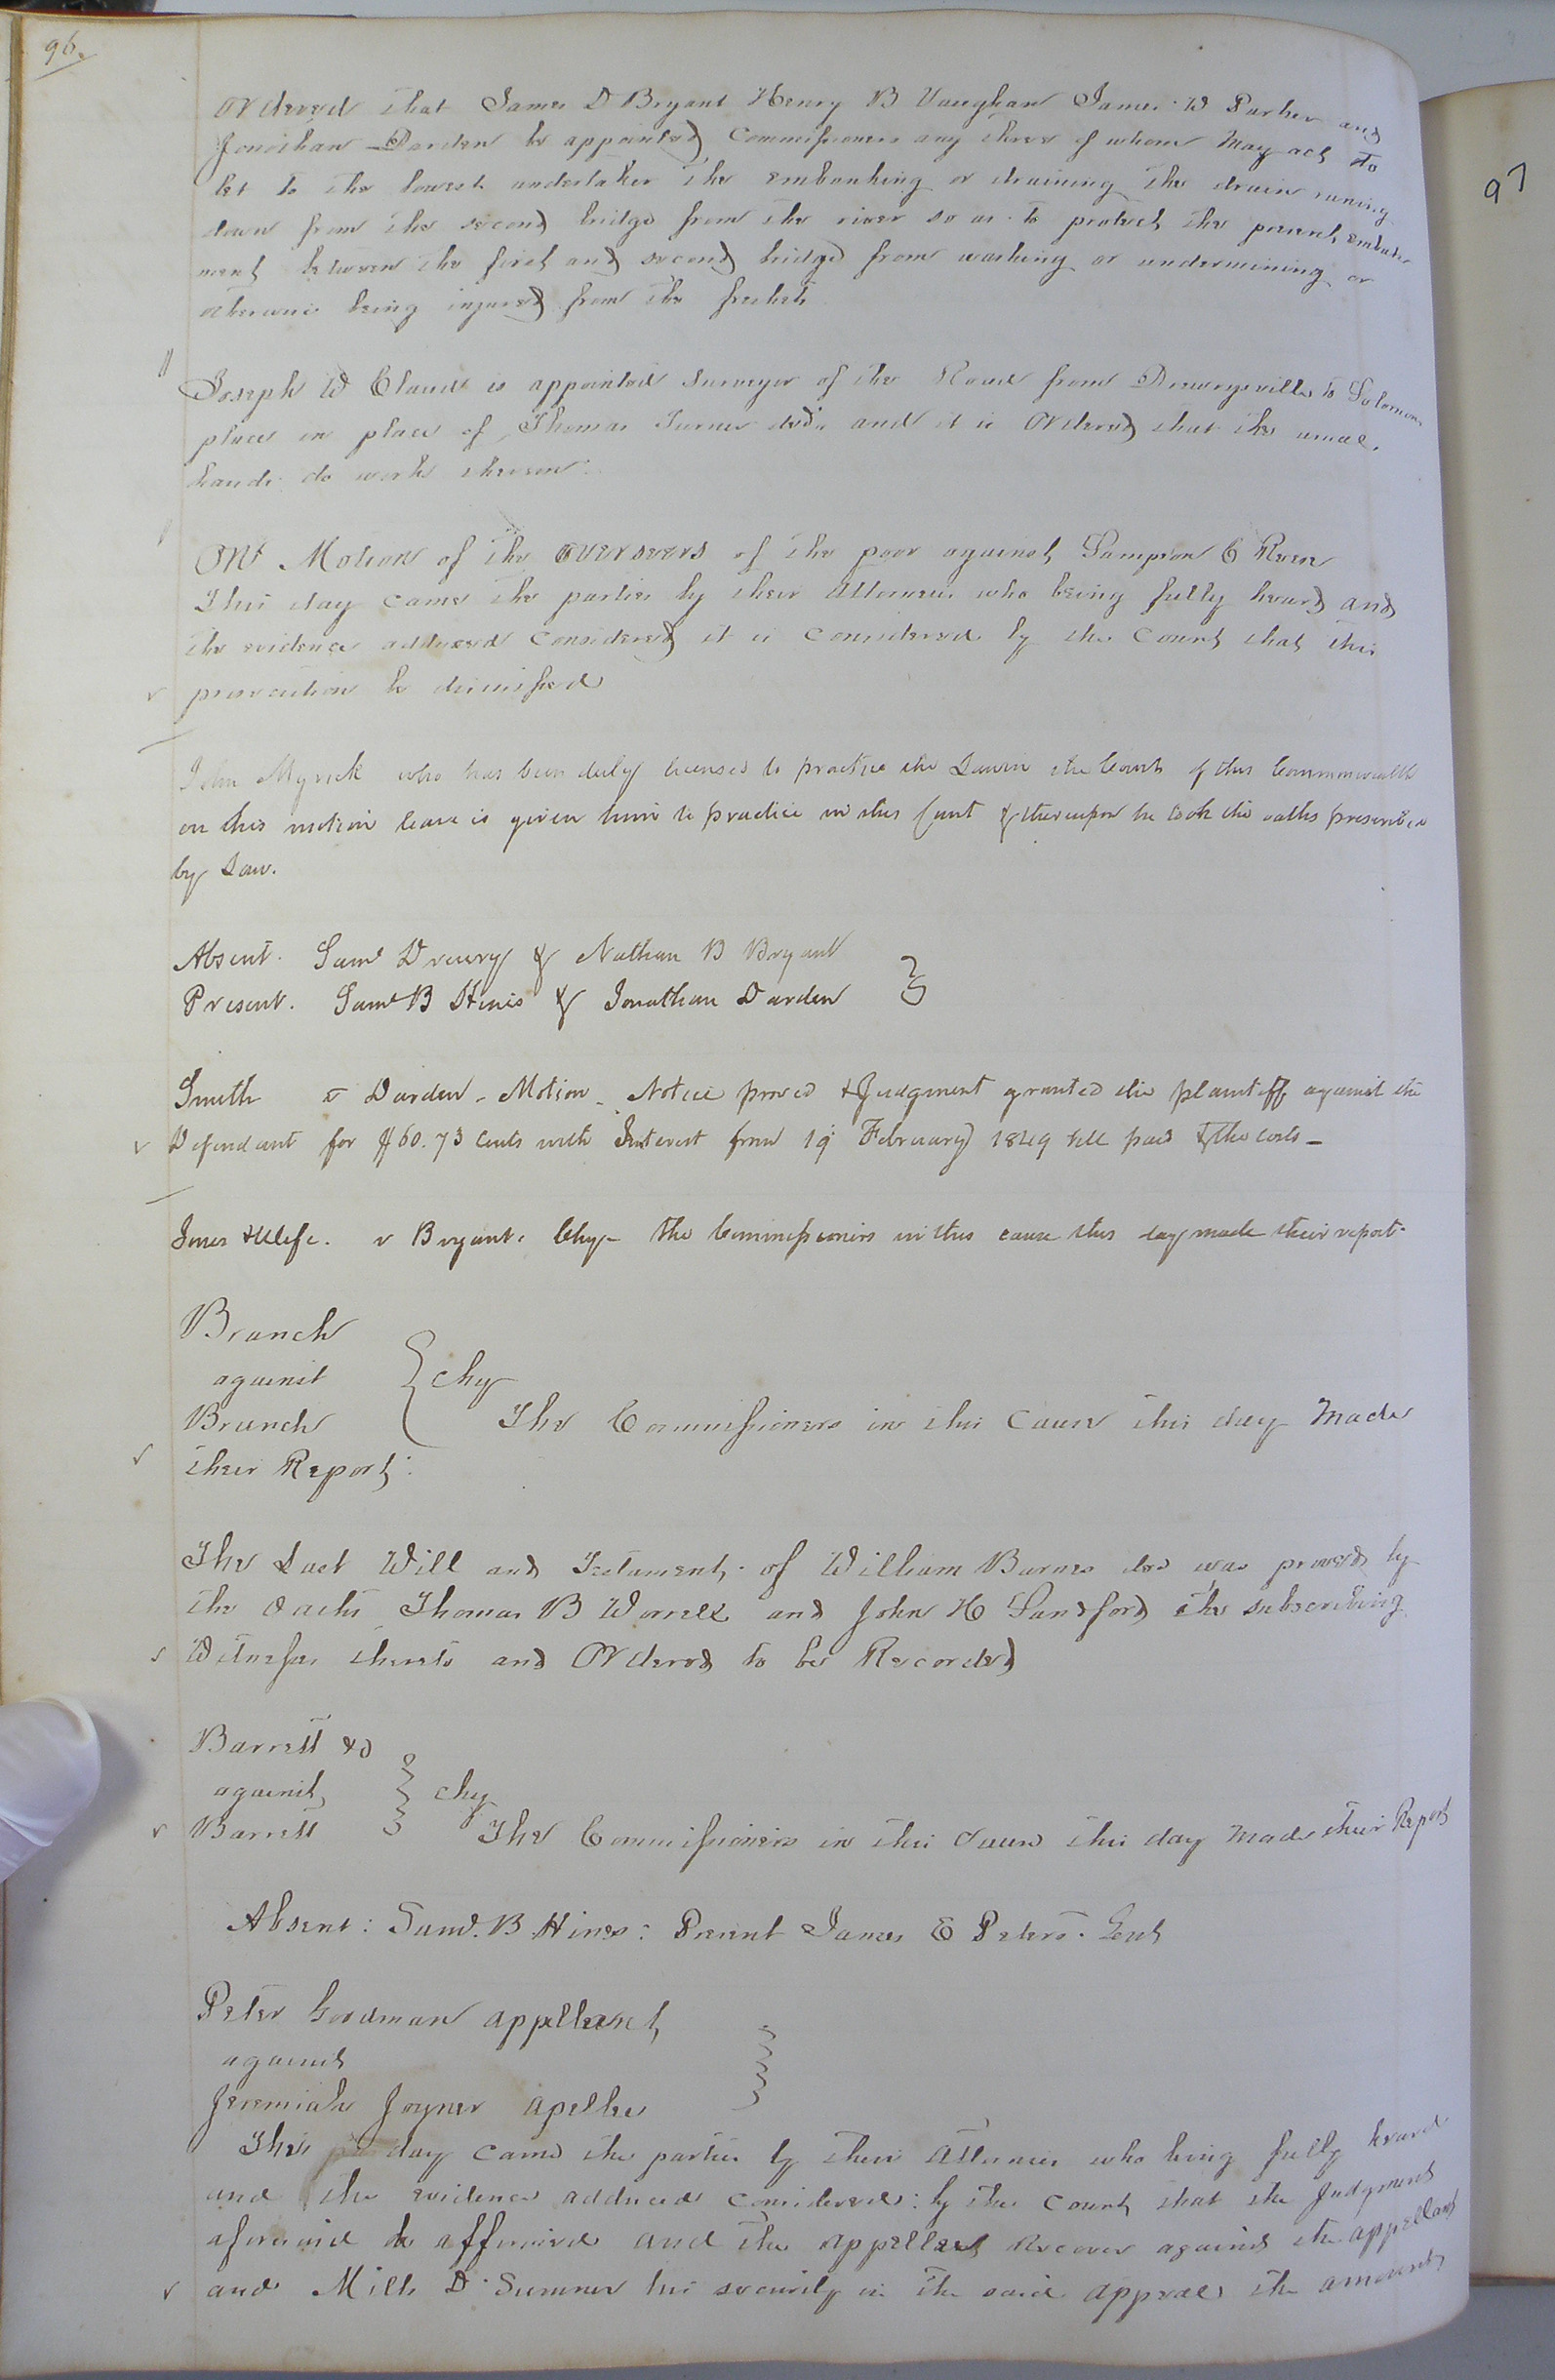 96.
Ordered that James D Bryant Henry B Vaughan James W Parker and
Jonathan Darden be appointed Commissioners any three of whom May act to
let to the lowest undertaker the embanking or draining the drain runing
down from the second bridge from the river so as to protect the present embank
ment between the first and second bridge from washing or undermining or
otherwise being injured from the freshets
Joseph W Claud is appointed Surveyor of the Road from Drewrysville to Solomons
place in place of Thomas Turner decd. and it is Ordered that the usual
hands do work thereon
On Motion of the overseers of the poor against Sampson C Reese
This day came the parties by their Attorneies who being fully heard and
the evidence adduced Considered it is Considered by the Court that this
prosecution be dismissed
John Myrick who has been duly licensed to practice the Law in the Courts of this Commonwealth
on his motion leave is given him to practice in this Court & thereupon he took the oaths prescribed
by Law.
Absent. Saml Drewry & Nathan B Bryant
Present. Saml B Hines & Jonathan Darden
Smith v Darden - Motion - Notice proved & Judgment granted the plaintiff against the
Defendant for $60.73 Cents with Interest from 19 February 1849 till paid & the costs -
Jones & Wife. v Bryant. Chy - The Commissioners in this cause this day made their report.
Branch
against chy
Branch The Commissioners in this Cause this day Made
their Report.
The Last Will and Testament of William Barnes decd was proved by
the oaths Thomas B Worrell and John H Sandford the subscribing
Witnesses thereto and Ordered to be Recorded
Barrett &c
against chy
Barrett The Commissioners in this Cause this day Made their Report
Absent: Saml. B Hines: Present James E Peters. Gent
Peter Goodman appellant
against
Jeremiah Joyner apellee
This day came the parties by their Attornies who being fully heard
and the evidence adduced considered: by the Court that the Judgment
aforesaid be affirmed and the appellee Recover against the appellant
and Mills D. Sumner his security in the said appeal the amount
97